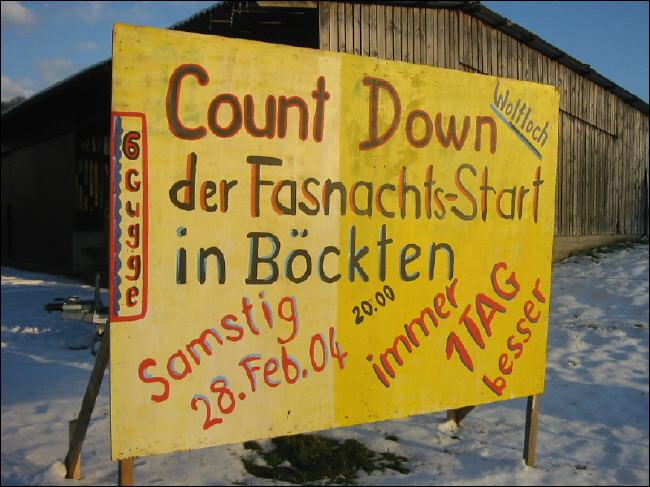 Count Down
Wolfloch
6 Gugge
der Fasnachts-Start
in Böckten
20:00
Samstig
28.Feb.04
immer
1TAG
besser